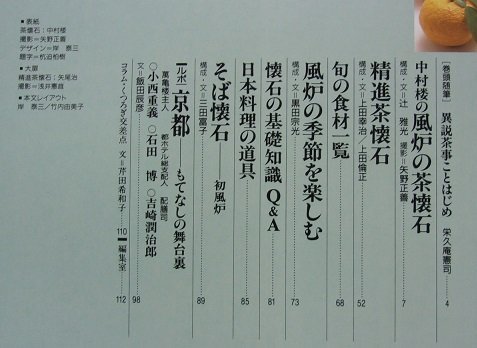 [巻頭随筆] 異説茶事ことはじめ 栄久庵憲司 4
中村楼の風炉の茶懐石
構成・文=辻 雅光 撮影=矢野正善 7
精進茶懐石
構成・文=上田幸治/上田倫正 52
旬の食材一覧 68
風炉の季節を楽しむ
構成・文=黒田宗光 73
懐石の基礎知識 Q&A 81
日本料理の道具 85
そば懐石——初風炉
構成・文=三田富子 89
[ルポ] 京都 もてなしの舞台裏
萬亀楼主人 都ホテル総支配人 配膳司
○小西重義 ○石田 博 ○吉崎潤治郎
文=飯田辰彦 98
コラム・くつろぎ交差点 文=芹田希和子 110
編集室 112
■表紙
茶懐石:中村楼
撮影=矢野正善
デザイン=岸 泰三
題字=杭迫柏樹
■大扉
精進茶懐石:矢尾治
撮影=浅井憲雄
■本文レイアウト
岸 泰三/竹内由美子